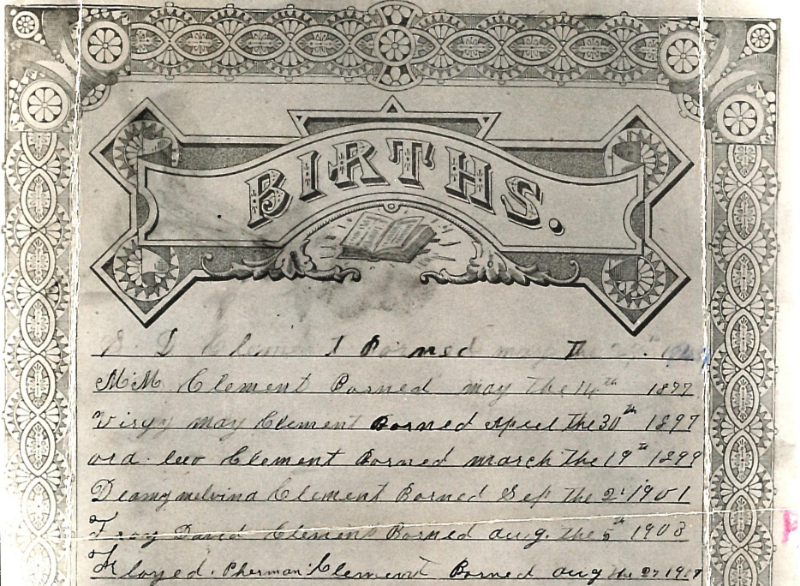 BIRTHS.
D Clement Borned may the
M M Clement Borned may the 14th 1877
Virgy may Clement Borned April the 30th 1897
ora leo Clement Borned march the 19th 1899
Deamy melvina Clement Borned Sep the 2 1901
Troy David Clement Borned aug. the 5th 1903
Floyed. Sherman. Clement Borned aug the 27